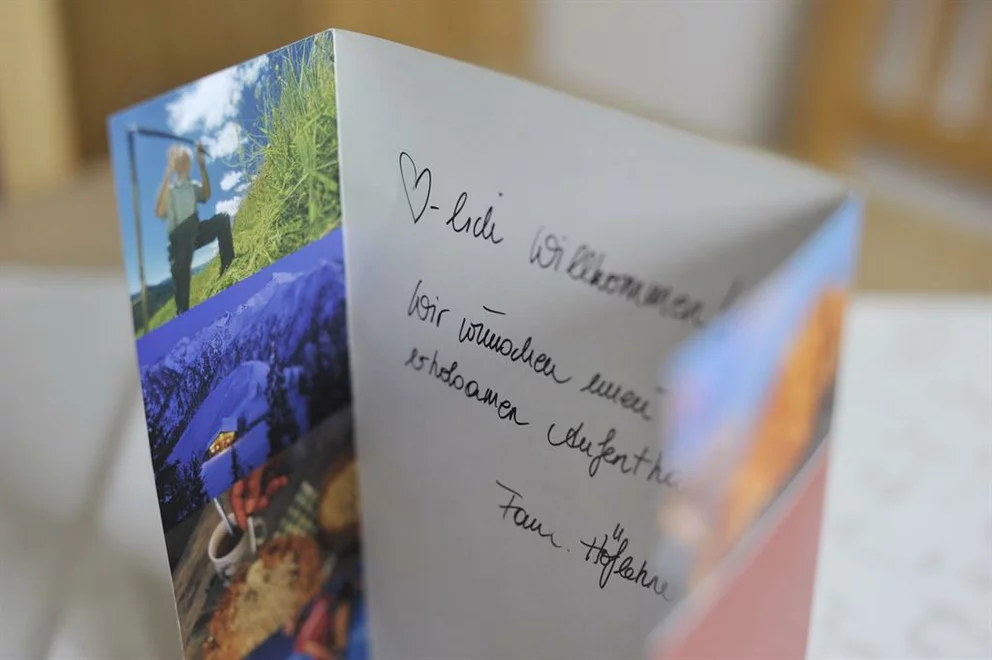 ♡-lich Willkommen!
Wir wünschen einen
erholsamen Aufentha
Fam. Höflehne